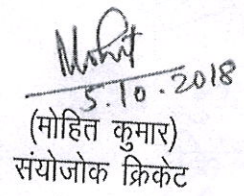 Mohit
5.10.2018
(मोहित कुमार)
संयोजोक क्रिकेट